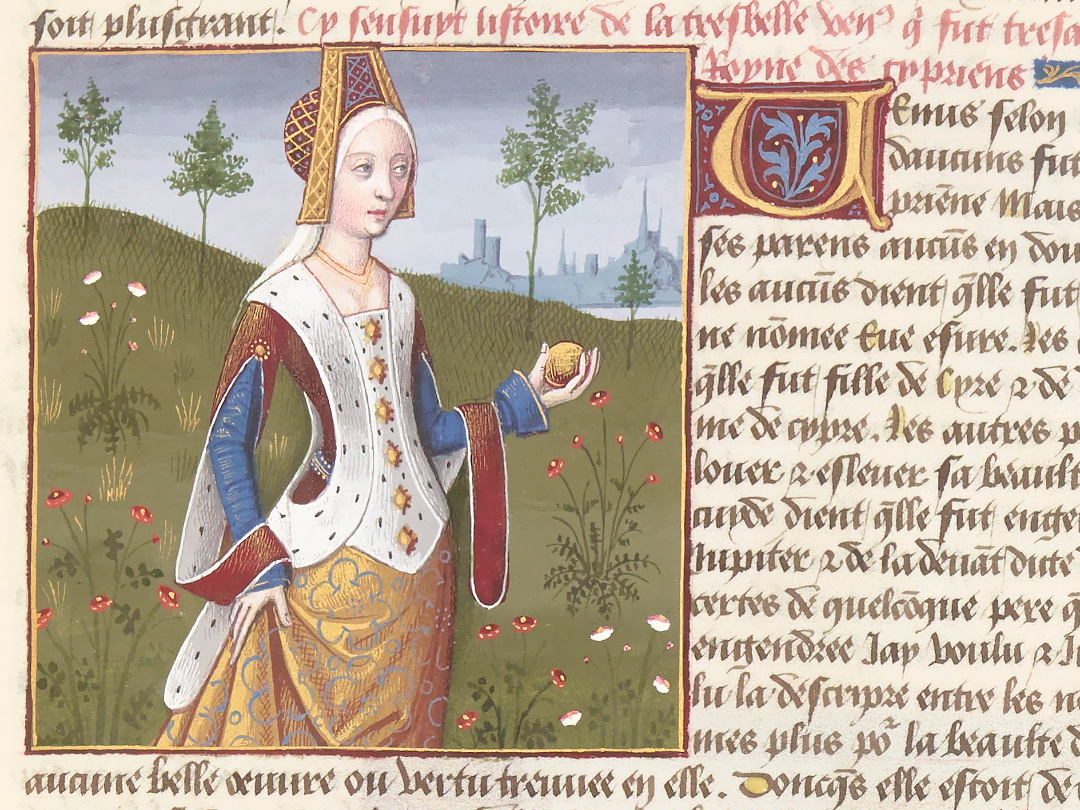 soit plusgrant. Cy sensuyt listoire de la tresbelle venꝰ q̄ fut tresa
Royne des cypriens
Uenus selon
daucuns fut
priēne Mais
ses parens aucūs en dou
les aucūs dient q̄lle fut
ne nōmee
q̄lle fut fille de Cyre ⁊ de
me de cypre. Les autres p
louer ⁊ esleuer sa beault
cuyde dient q̄lle fut enge
Jupiter ⁊ de la deuāt dicte
certes de quelcōque pere q̄
engendree Jay voulu ⁊
lu la descripre entre les n
mes plus po᷑ la beaulte d
aucune belle œuure ou vertu trouuee en elle. Doncq̄s elle estoit de